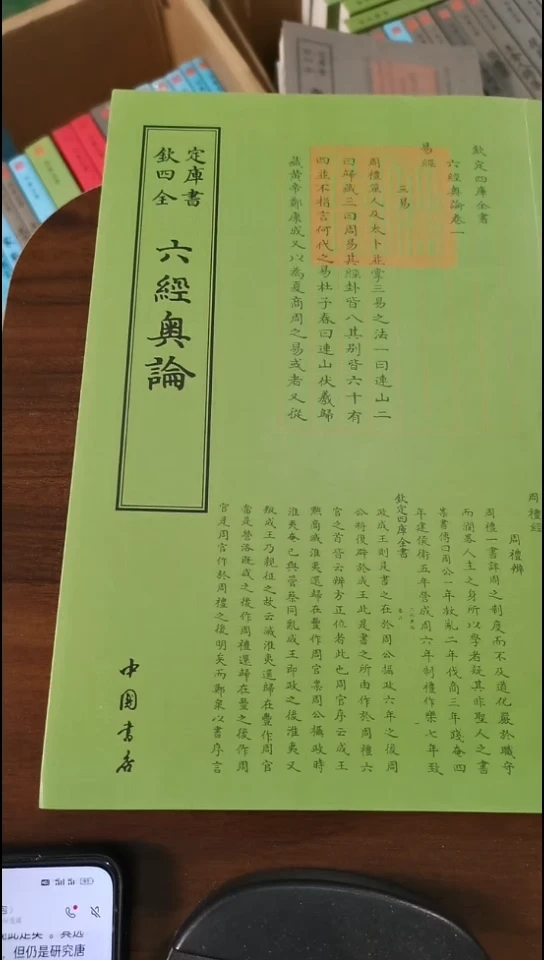 欽定四庫全書
六經奧論
中國書店
欽定四庫全書
六經奧論卷一
易經
三易
周禮筮人及太卜並掌三易之法一曰連山二
曰歸藏三曰周易其經卦皆八其別皆六十有
四並不指言何代之易杜子春曰連山伏羲歸
藏黄帝鄭康成又以為夏商周之易或者又從
周禮經
周禮辨
周禮一書詳周之制度而不及道化嚴於職守
而濶畧人主之身所以學者疑其非聖人之書
案書傳曰周公一年救亂二年伐商三年踐奄四
年建侯衛五年營成周六年制禮作樂七年致
欽定四庫全書
政成王則是書之在於周公攝政六年之後周
公將復辟於成王此是書之所由作於周禮六
官之首皆云辨方正位者此也周官序云成王
黜商滅淮夷還歸在豐作周官案周公攝政時
淮夷奄已與管蔡同亂成王即政之後淮夷又
叛成王乃親征之故云滅淮夷還歸在豐作周官
當是營洛既成之後作周禮還歸在豐之後作周
官是周官作於周禮之後明矣而鄭泉以書序言
但仍是研究唐